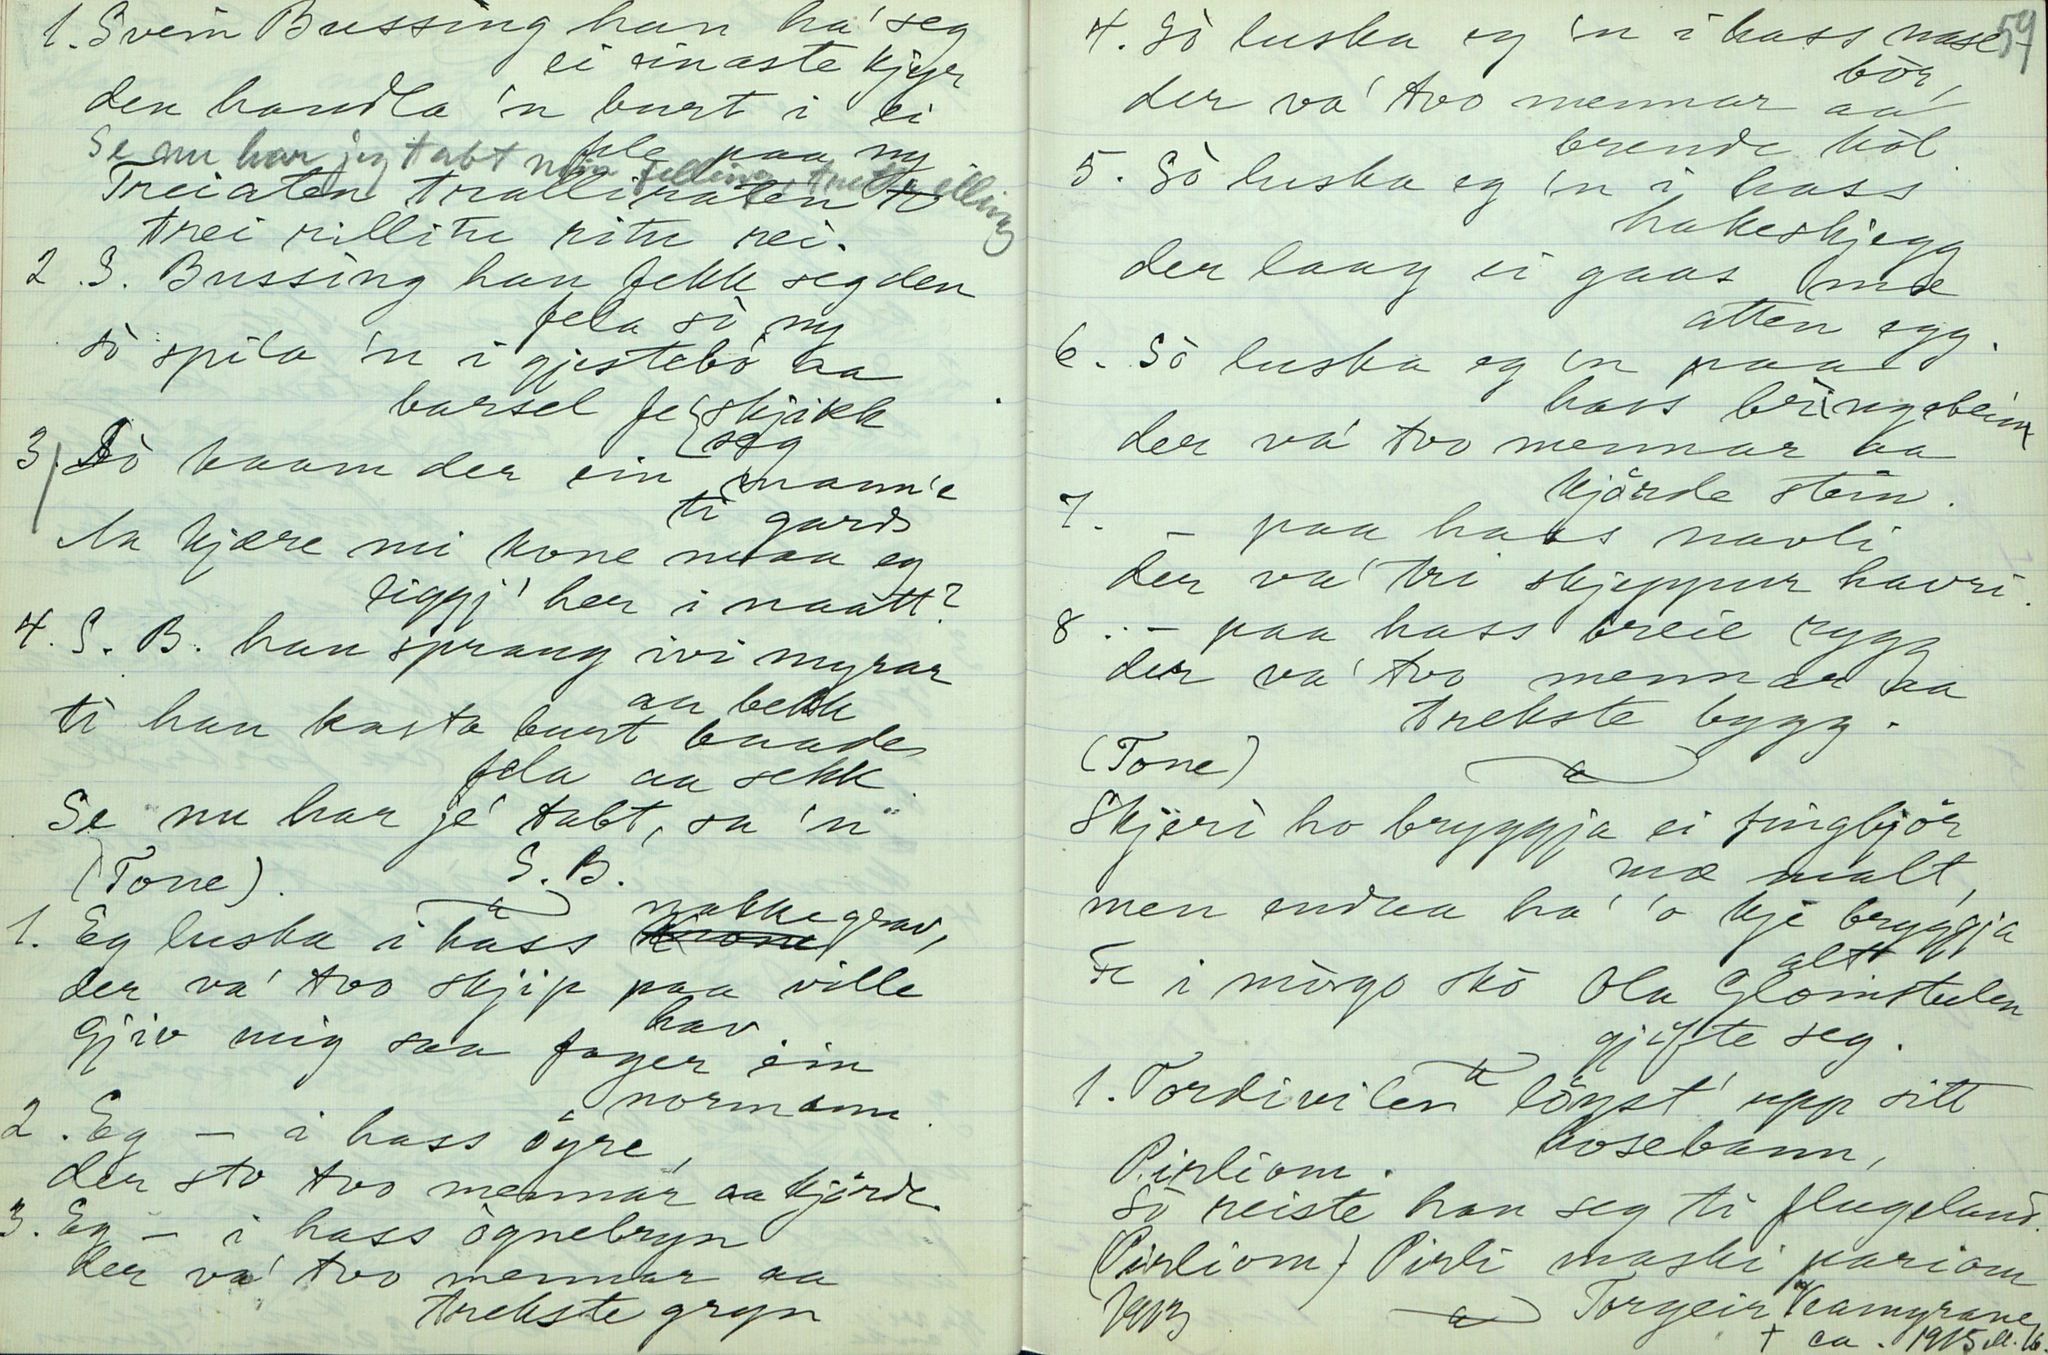 1. Svein Bussing han ha' seg
ei einaste kjyr
den handla 'n burt i ei
fele paa ny
Se nu har jeg tabt min felling,
Treiaten tralliraten
trei rillitu ritu rei.
2. S. Bussing han fekk seg den
fela so ny
so spila 'n i gjestebo aa
barsel fe skjikk
seg
3. So kaam der ein mann'e
ti gards
Aa kjære mi kone maa eg
liggj' her i naatt?
4. S. B. han sprang ivi myrar
aa bekk
ti han kasta burt baade
fela aa sekk.
Se "nu har je' tabt, sa 'n"
S. B.
(Tone).
1. Eg luska i hass nakkegrav,
der va' tvo skjip paa ville
hav
Gjiv mig saa fager ein
normann.
2. Eg — i hass öyre,
der sto tvo mennar aa kjörde.
3. Eg — i hass ögnebryn
der va' tvo mennar aa
trekste gryn
59
4. So luska eg 'n i hass nase-
bör,
der va' tvo mennar aa
brende köl
5. So luska eg 'n i hass
hakeskjegg
der laag ei gaas mæ
atten egg.
6. So luska eg 'n paa
hass bringsbein
der va' tvo mennar aa
kjörde stein.
7. — paa hass navli
der va' tri skjeppur havri.
8. — paa hass breie rygg
der va' tvo mennar aa
trekste bygg.
(Tone)
Skjeri ho bryggja ei fingbjör
mæ malt,
men endaa ha' 'o kje bryggja
alt
Fe i mörgo sko Ola Glomstulen
gjifte seg.
1. Tordivilen löyst' upp sitt
hoseband,
Pirliom.
So reiste han seg ti flugeland.
(Pirliom) Pirli maski pariom
1913
Torgeir Kamyrane
† ca. 1915